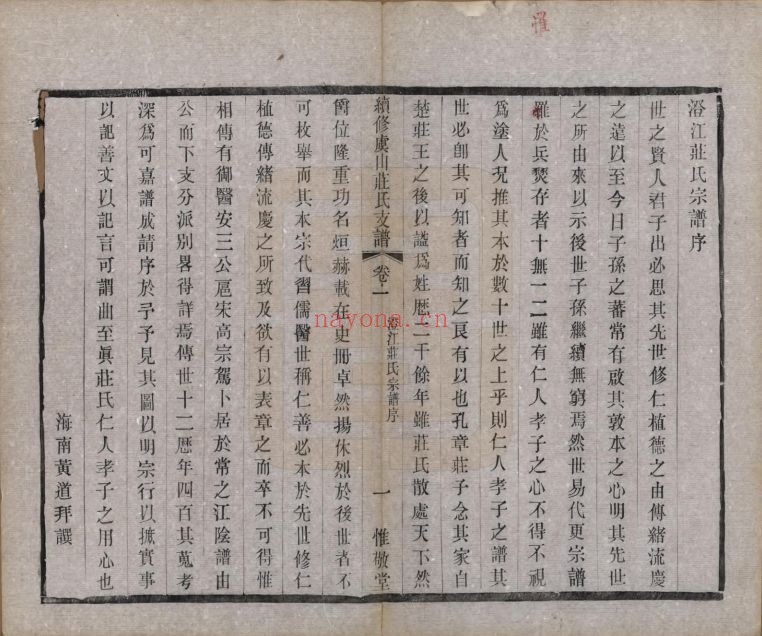 澄江莊氏宗譜序
世之賢人君子出必思其先世修仁植德之由傳緒流慶
之遠以至今日子孫之蕃常有啟其敦本之心明其先世
之所由來以示後世子孫繼續無窮焉然世易代更宗譜
罹於兵燹存者十無一二雖有仁人孝子之心不得不視
爲塗人况推其本於數十世之上乎則仁人孝子之譜其
世必卽其可知者而知之良有以也孔章莊子念其家自
楚莊王之後以謚爲姓歷二千餘年雖莊氏散處天下然
續修虞山莊氏支譜
卷一
澄江莊氏宗譜序
一
惟敬堂
爵位隆重功名烜赫載在史冊卓然揚休烈於後世者不
可枚舉而其本宗代習儒醫世稱仁善必本於先世修仁
植德傳緒流慶之所致及欲有以表章之而卒不可得惟
相傳有御醫安三公扈宋高宗駕卜居於常之江陰譜由
公而下支分派別畧得詳焉傳世十二歷年四百其蒐考
深爲可嘉譜成請序於予予見其圖以明宗行以摭實事
以記善文以記言可謂曲至眞莊氏仁人孝子之用心也
海南黃道拜譔
罹
nayona.cn